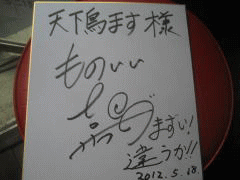 天下鳥ます様
ものいい
まずい!
違うか!!
2012.5.18.